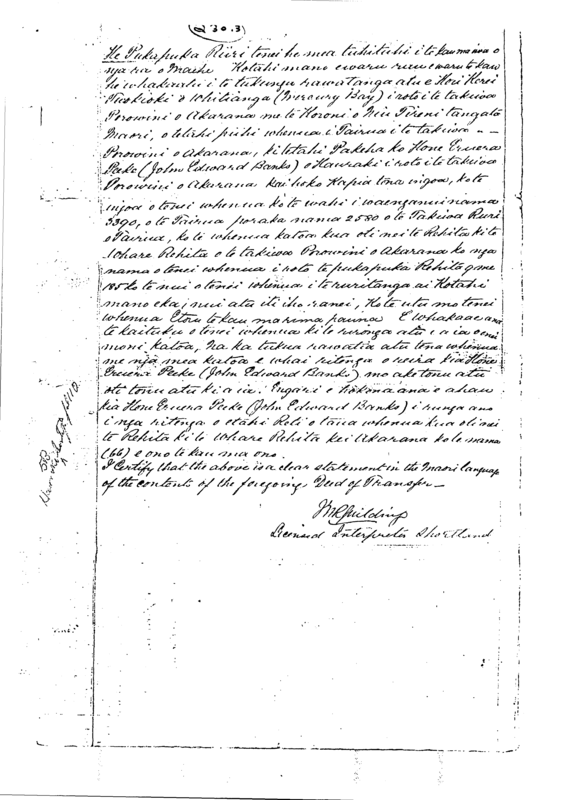 230.3
He Pukapuka Riiri tenei he mea tuhituhi i te kaumaiwa o
nga ra o Maehe Kotahi mano ewaru rau ewaru te kau
he whakaatu i te tukunga rawatanga atu e Hori Kerei
Tuokioki o Whitianga (Mercury Bay) i roto i te takiwa
Porowini o Akarana me te Koroni o Niu Tireni tangata
Maori, o tetahi pihi whenua i Tairua i te takiwa
Porowini o Akarana, ki tetahi Pakeha ko Hone Eruera
Peeke (John Edward Banks) o Hauraki i roto i te takiwa
Porowini o Akarana kai hoko Kapia tona ingoa, ko te
ingoa o tenei whenua ko te wahi i waenganui nama
3390, o te Tairua poraka nama 2580 o te Takiwa Ruri
o Tairua, ko te whenua katoa kua oti nei te Rehita ki te
Whare Rehita o te takiwa Porowini o Akarana ko nga
nama o tenei whenua i roto te pukapuka Rehita 9 me
185 ko te nui o tenei whenua i te ruritanga ai Kotahi
mano eka, nui atu iti iho ranei, Ko te utu mo tenei
whenua Etoru te kau marima pauna E whakaae ana
te kaituku o tenei whenua ki te rironga atu ki a ia o enei
moni katoa, na ka tukua rawatia atu tona whenua
me nga mea katoa e whai ritenga o reira kia Hone
Eruera Peeke (John Edward Banks) mo ake tonu atu
oti tonu atu ki a ia. Engari e hokona ana e ahau
kia Hone Eruera Peeke (John Edward Banks) i runga ano
i nga ritenga o etahi Roti o taua whenua kua oti nei
te Rehita ki te Whare Rehita kei Akarana ko te nama
(66) e ono te kau ma ono.
I Certify that the above is a clear statement in the Maori language
of the contents of the foregoing Deed of Transfer
Licensed Interpreter Shortland